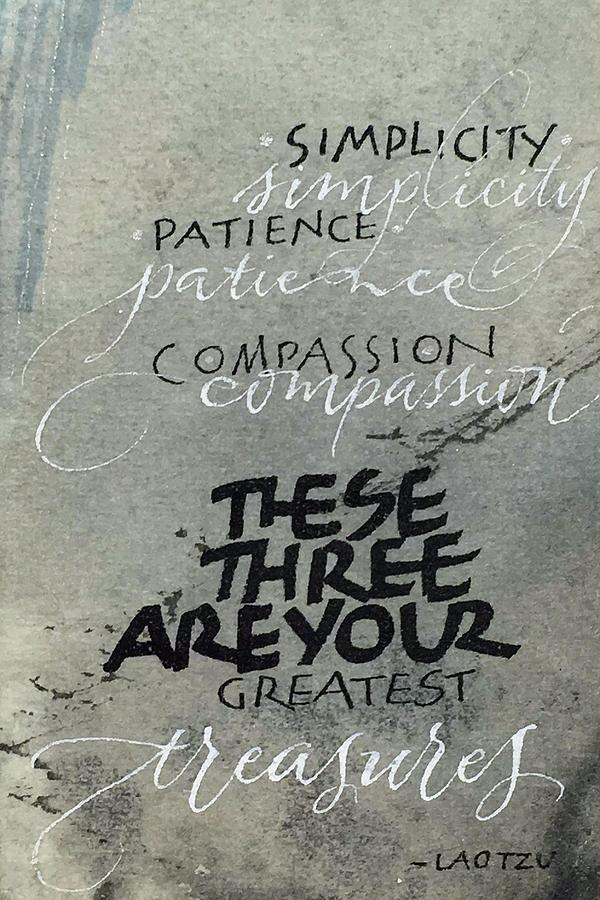 SIMPLICITY
simplicity
PATIENCE
patience
COMPASSION
compassion
THESE
THREE
ARE YOUR
GREATEST
treasures
- LAO TZU